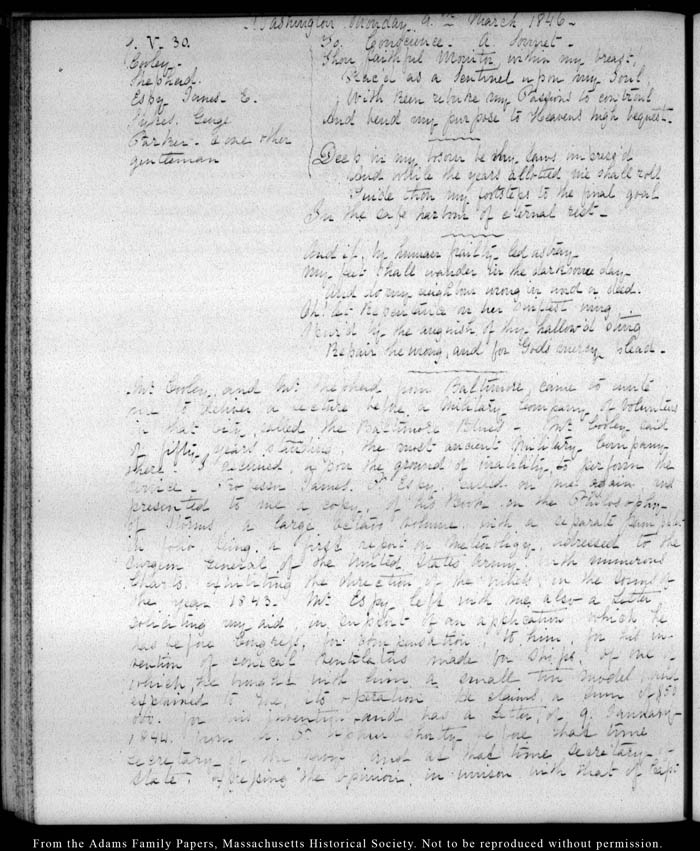 Washington Monday 9th March 1846-
V. 30.
Cooley-
Shepherd.
Espy James.
George
Parker- & one other
gentleman
To Conscience- A Sonnet-
Thou faithful Monitor within my breast,
Plac'd as a Sentinel upon my Soul,
With keen rebuke my Passions to controul
And bend my purpose to Heavens high bequest-
Deep in my bosom be thy laws impress'd
And while the years allotted me shall roll
Guide thou my footsteps to the final goal
In the safe harbour of eternal rest-
And if, by human frailty led astray
My feet shall wander in the darksome day-
And do my neighbour wrong in word or deed.
Oh! let Repentance on her swiftest wing
by the anguish of thy hallow'd sting
Repair the wrong, and for Gods mercy plead-
Mr Cooley, and Mr Shepherd from Baltimore, came to invite
me to deliver a lecture before a Military Company of Volunteers
in that City, called the Baltimore Blues- Mr Cooley said
of fifty years standing- the most ancient Military Company
there- I declined, upon the ground of inability to perform the
service- Professor James P. Espy called on me again and
presented to me a copy of his Book on the Philosophy
of Storms, a large octavo volume, with a separate pamphlet
in folio, being a first report on Meteorology, addressed to the
Surgeon General of the United States Army, with numerous
Charts exhibiting the direction of the winds in the
the year 1843- Mr Espy left with me also a Letter
soliciting my aid, in support of an application which he
has before Congress, for compensation to him for his in-
vention of conical Ventilators made for ships; of one of
which, he brought with him a small tin model, and
explained to me, its operation. He claims a sum of $50
000. for his invention- and has a Letter, of 9. January
1844. from before that time
Secretary of the Navy and at that time Secretary of
State. expressing the opinion, in unison with that of
From the Adams Family Papers, Massachusetts Historical Society. Not to be reproduced without permission.